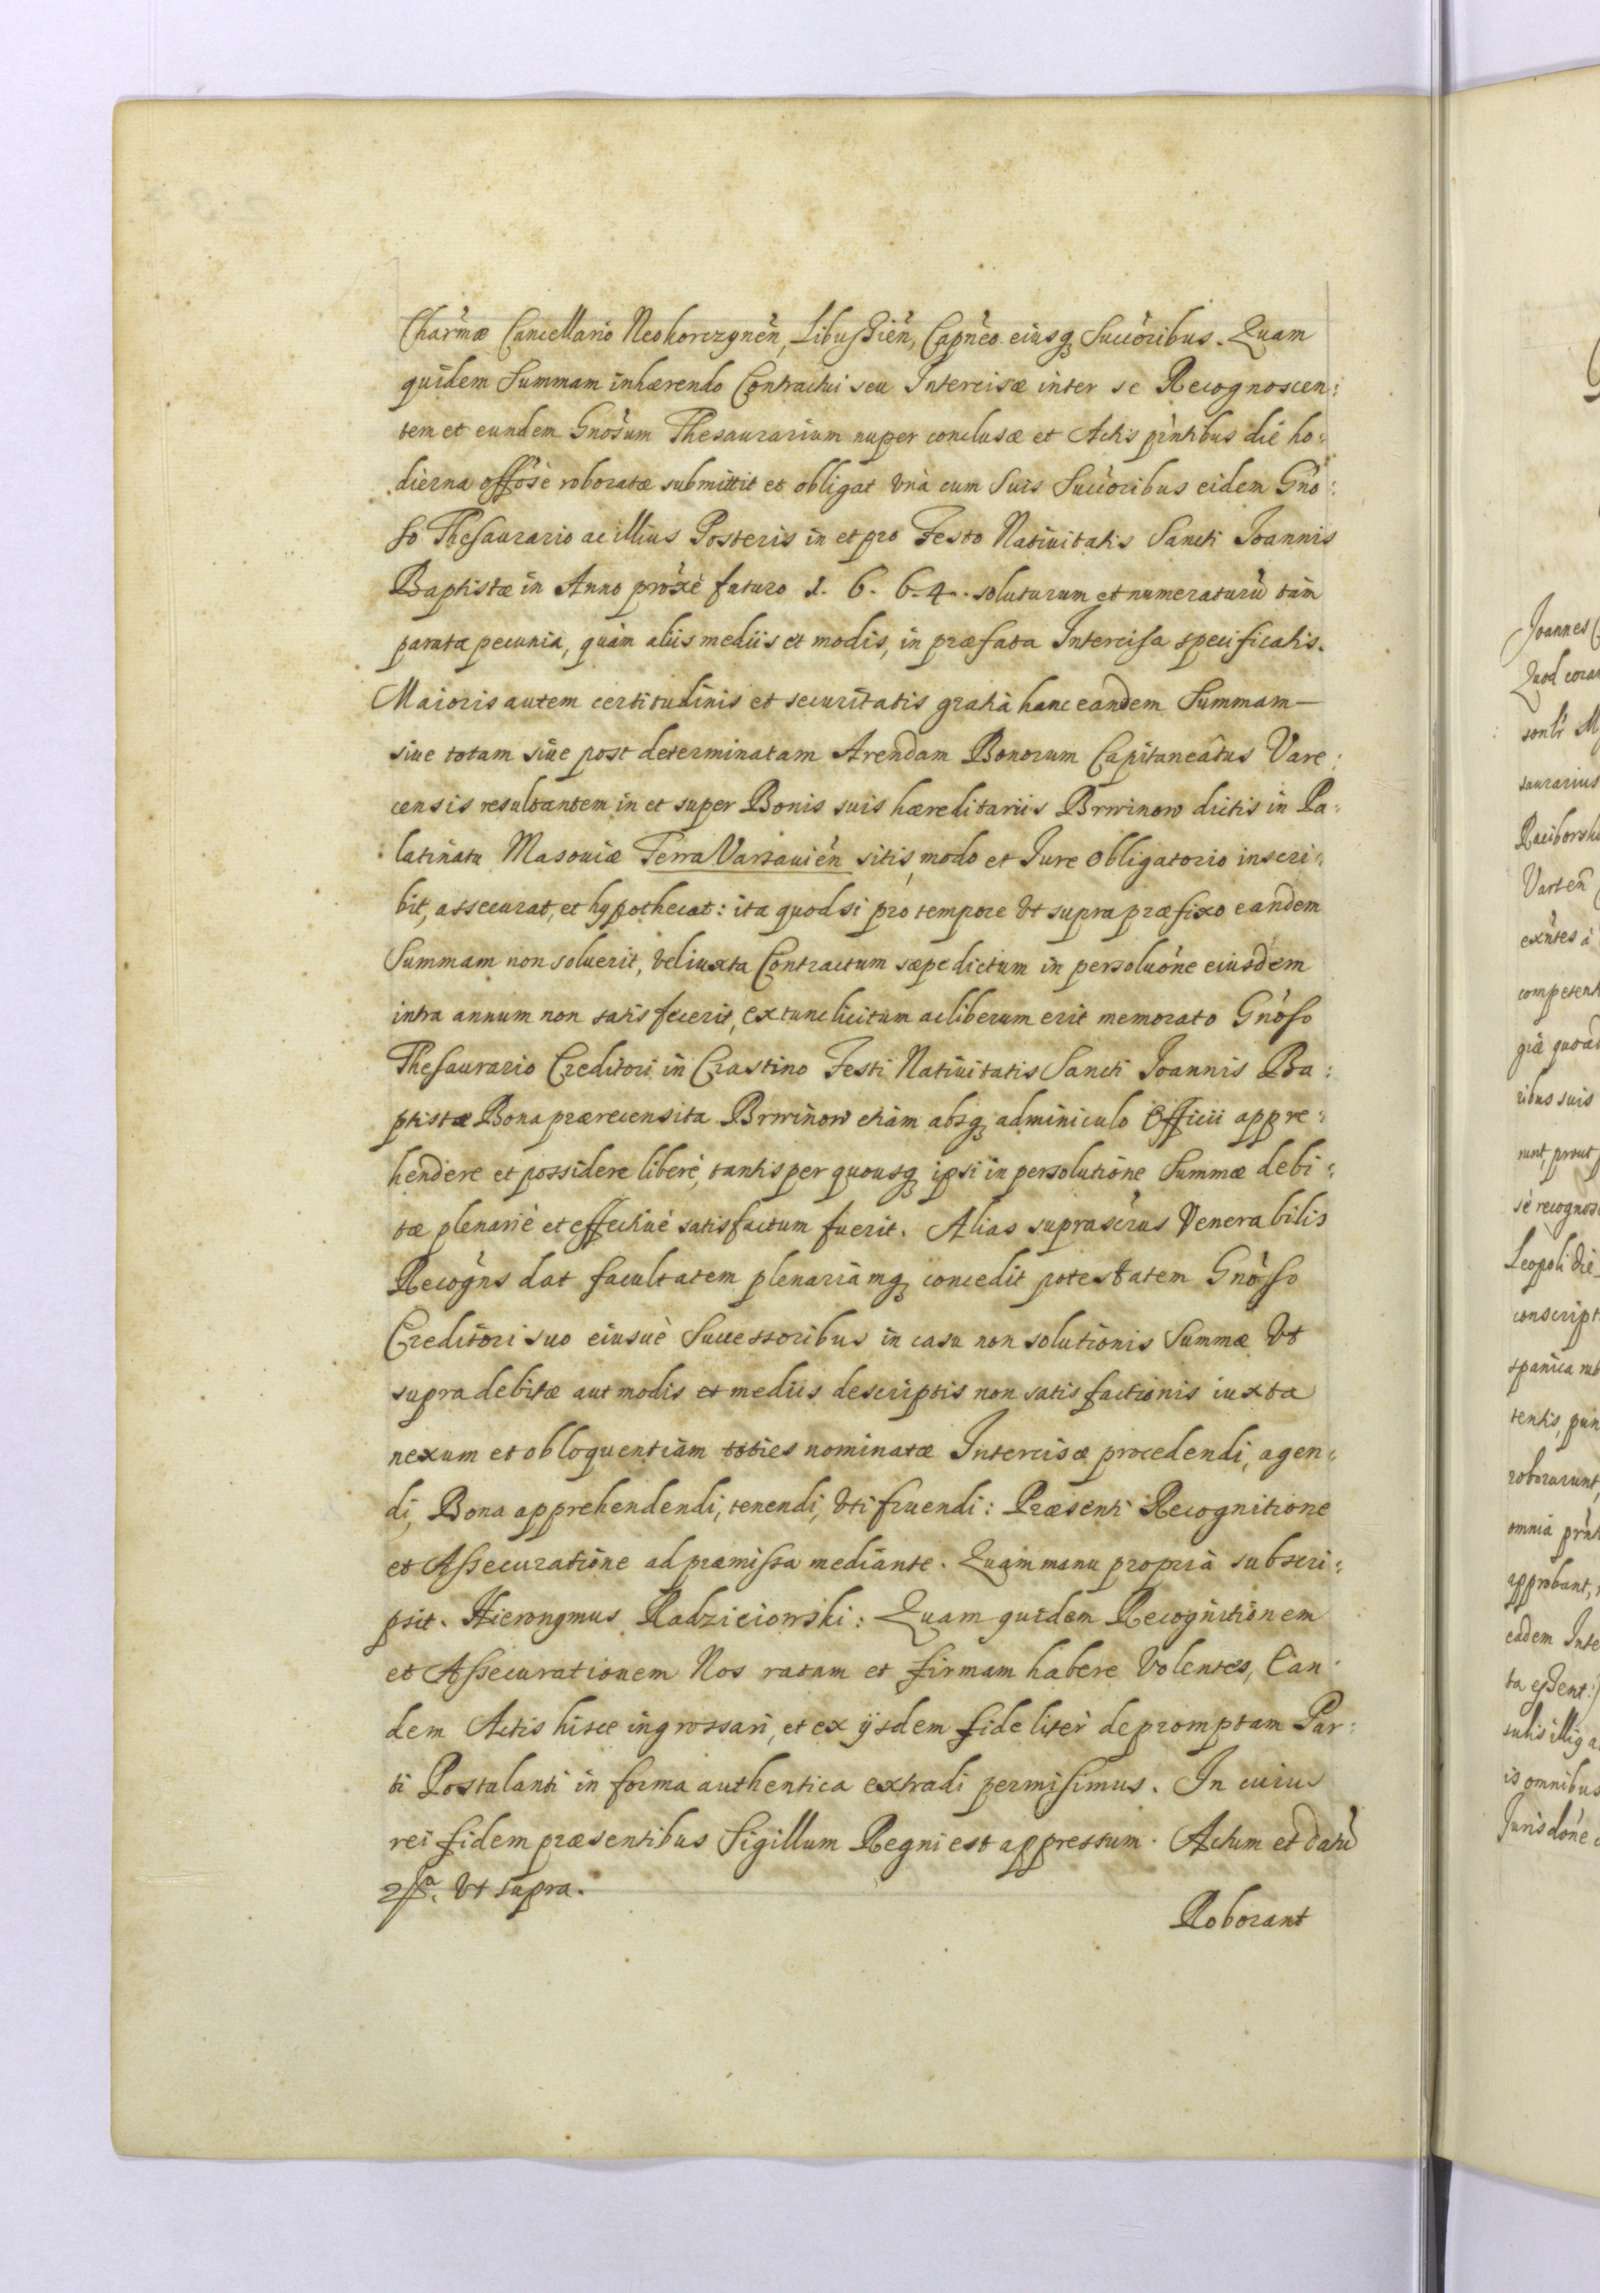 Charmæ Cancellario Neokorczynen, Libuszien, Capneo eiusq Succoribus. Quam
quidem Summam inhærendo Contractui seu Intercisæ inter se Recognoscen:
tem et eundem Gnosum Thesaurarium nuper conclusæ et Actis pntibus die ho:
dierna offose roboratæ submittit et obligat Vna cum Suis Succoribus eidem Gno:
so Thesaurario ac illius Posteris in et pro Festo Natiuitatis Sancti Joannis
Baptistæ in Anno proxe futuro 1. 6. 6. 4. soluturum et numeraturu tam
parata pecunia, quàm aliis mediis et modis, in præfata Intercisa specificatis.
Maioris autem certitudinis et securitatis gratià hanc eandem Summam
siue totam siue post determinatam Arendam Bonorum Capitaneatus Vare:
censis resultantem in et super Bonis suis hæreditariis Brwinow dictis in Pa:
latinatu Masouiæ Terra Varsauien sitis, modo et Jure obligatorio inscri:
bit, assecurat, et hypothecat: ita quod si pro tempore Vt supra præfixo eandem
Summam non soluerit, vel iuxta Contractum sæpe dictum in persoluone eiusdem
intra annum non satis fecerit, extunc licitum ac liberum erit memorato Gnoso
Thesaurario Creditori in Crastino Festi Natiuitatis Sancti Joannis Ba:
ptistæ Bona prærecensita Brwinow etiam absq adminiculo Officii appre:
hendere et possidere liberè, tantisper quousq ipsi in persolutione Summæ debi:
tæ plenariè et effectiuè satisfactum fuerit. Alias suprascrus Venerabilis
Recogns dat facultatem plenariamq concedit potestatem Gnoso
Creditori suo eiusuè Successoribus in casu non solutionis Summæ Vt
supra debitæ aut modis et mediis descriptis non satisfactionis iuxta
nexum et obloquentiam toties nominatæ Intercisæ procedendi, agen:
di, Bona apprehendendi, tenendi, Vti fruendi: Præsenti Recognitione
et Assecuratione ad præmissa mediante. Quam manu propriâ subscri:
psit. Hieronymus Radzieiowski: Quam quidem Recognitionem
et Assecurationem Nos ratam et firmam habere Volentes, Ean:
dem Actis hisce ingrossari, et ex ijsdem fideliter depromptam Par:
ti Postulanti in forma authentica extradi permisimus. In cuius
rei fidem præsentibus Sigillum Regni est appressum. Actum et datu
Vt supra.
Roborant
Joannes
Quod
saurarius
competent
ribus suis
sè recognos
Leopoli die
conscript
tentis,
roborarunt,
omnia
approbant,
eadem Inte
is omnibus